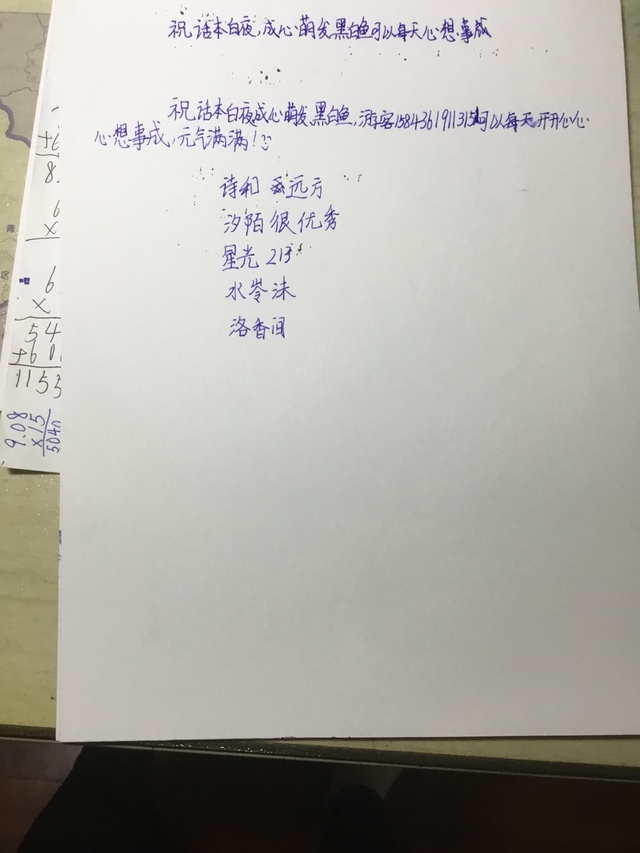 祝话本白夜,成心萌发,黑白鱼可以每天心想事成
祝话本白夜,成心萌发,黑白鱼,游客1584361911315可以每天开开心心
心想事成,元气满满!
诗和远方
汐陌很优秀
星光213
水岑沫
洛香闾
6
x
8.
6
x
54
+6
1153
9.08
x15
504